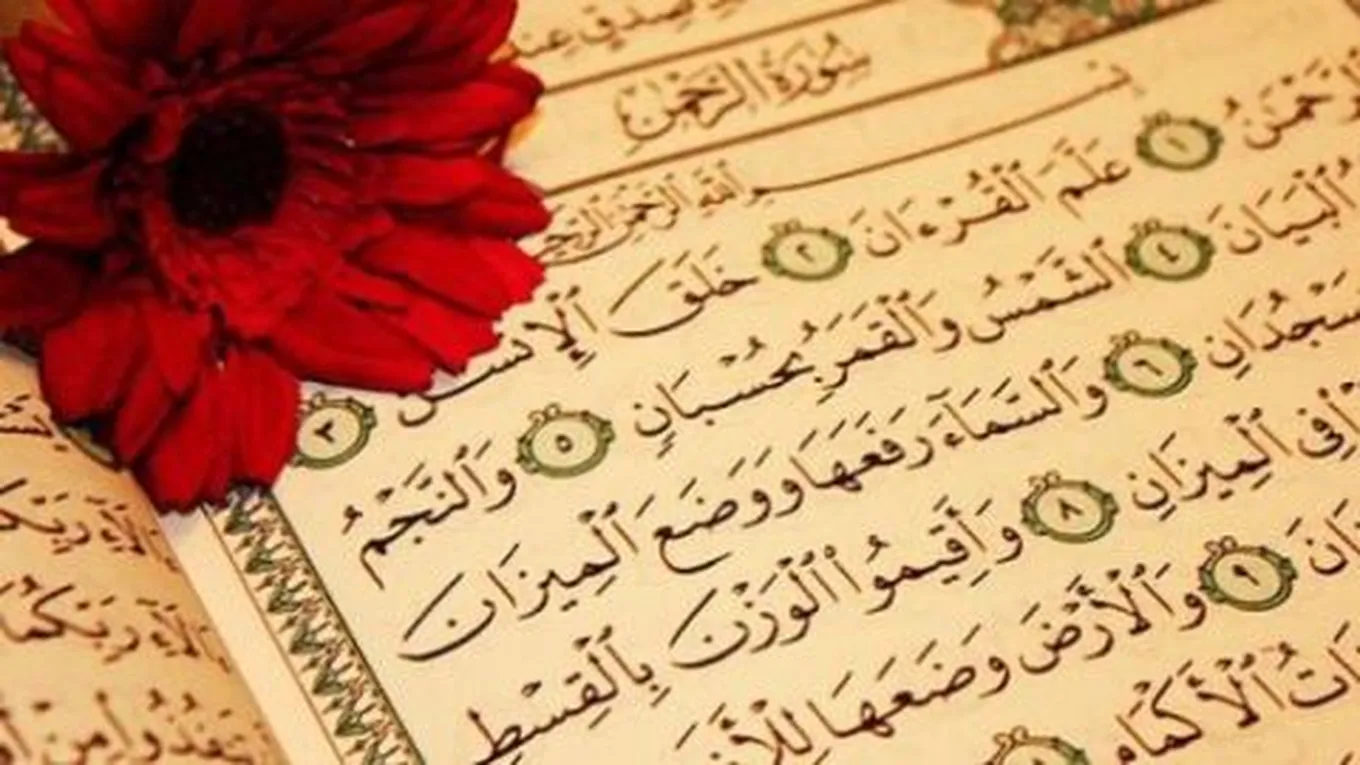 صدق عند
سورة الرحمن
بسم الله الرحمن الرحيم
ٱلرَّحْمَٰنُ ١ عَلَّمَ ٱلْقُرْءَانَ ٢ خَلَقَ ٱلْإِنسَٰنَ ٣
ٱلْبَيَانَ ٤ ٱلشَّمْسُ وَٱلْقَمَرُ بِحُسْبَانٍ ٥ وَٱلنَّجْمُ
يَسْجُدَانِ ٦ وَٱلسَّمَآءَ رَفَعَهَا وَوَضَعَ ٱلْمِيزَانَ
فِى ٱلْمِيزَانِ ٨ وَأَقِيمُوا۟ ٱلْوَزْنَ بِٱلْقِسْطِ
٩ وَٱلْأَرْضَ وَضَعَهَا لِلْأَنَامِ
ذَاتُ ٱلْأَكْمَامِ
ءَالَآءِ رَبِّكُمَا
ءَالَآءِ رَبِّكُمَا
تَنفُذُوا۟ مِنْ